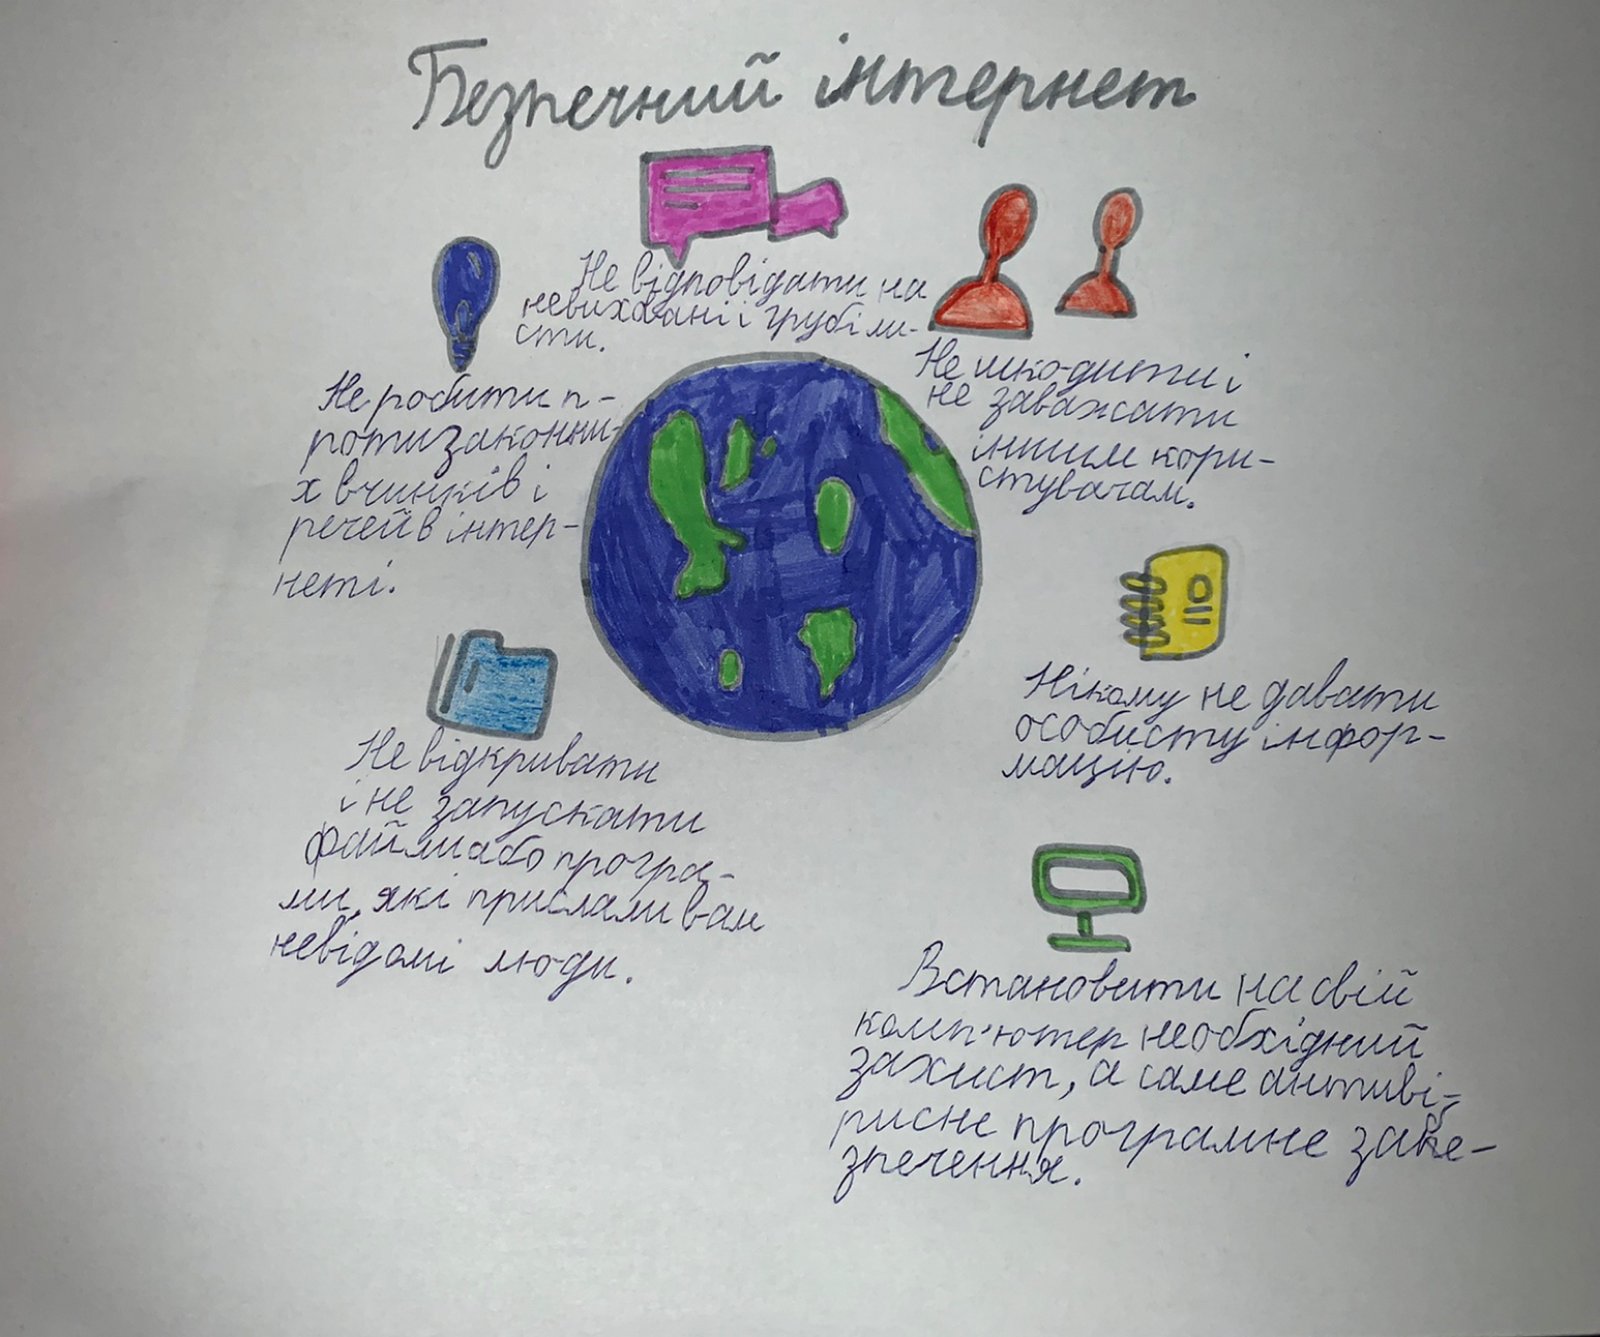 Безпечний інтернет
Не відповідати на
невиховані і грубі ли-
сти.
Не шкодити і
не заважати
іншим кори-
стувачам.
Не робити п-
ротизаконни-
х вчинків і
речей в інтер-
неті.
Нікому не давати
особисту інфор-
мацію.
Не відкривати
і не запускати
файли або програ-
ми, які прислали вам
невідомі люди.
Встановити на свій
комп'ютер необхідний
захист, а саме антиві-
рисне програмне забе-
зпечення.